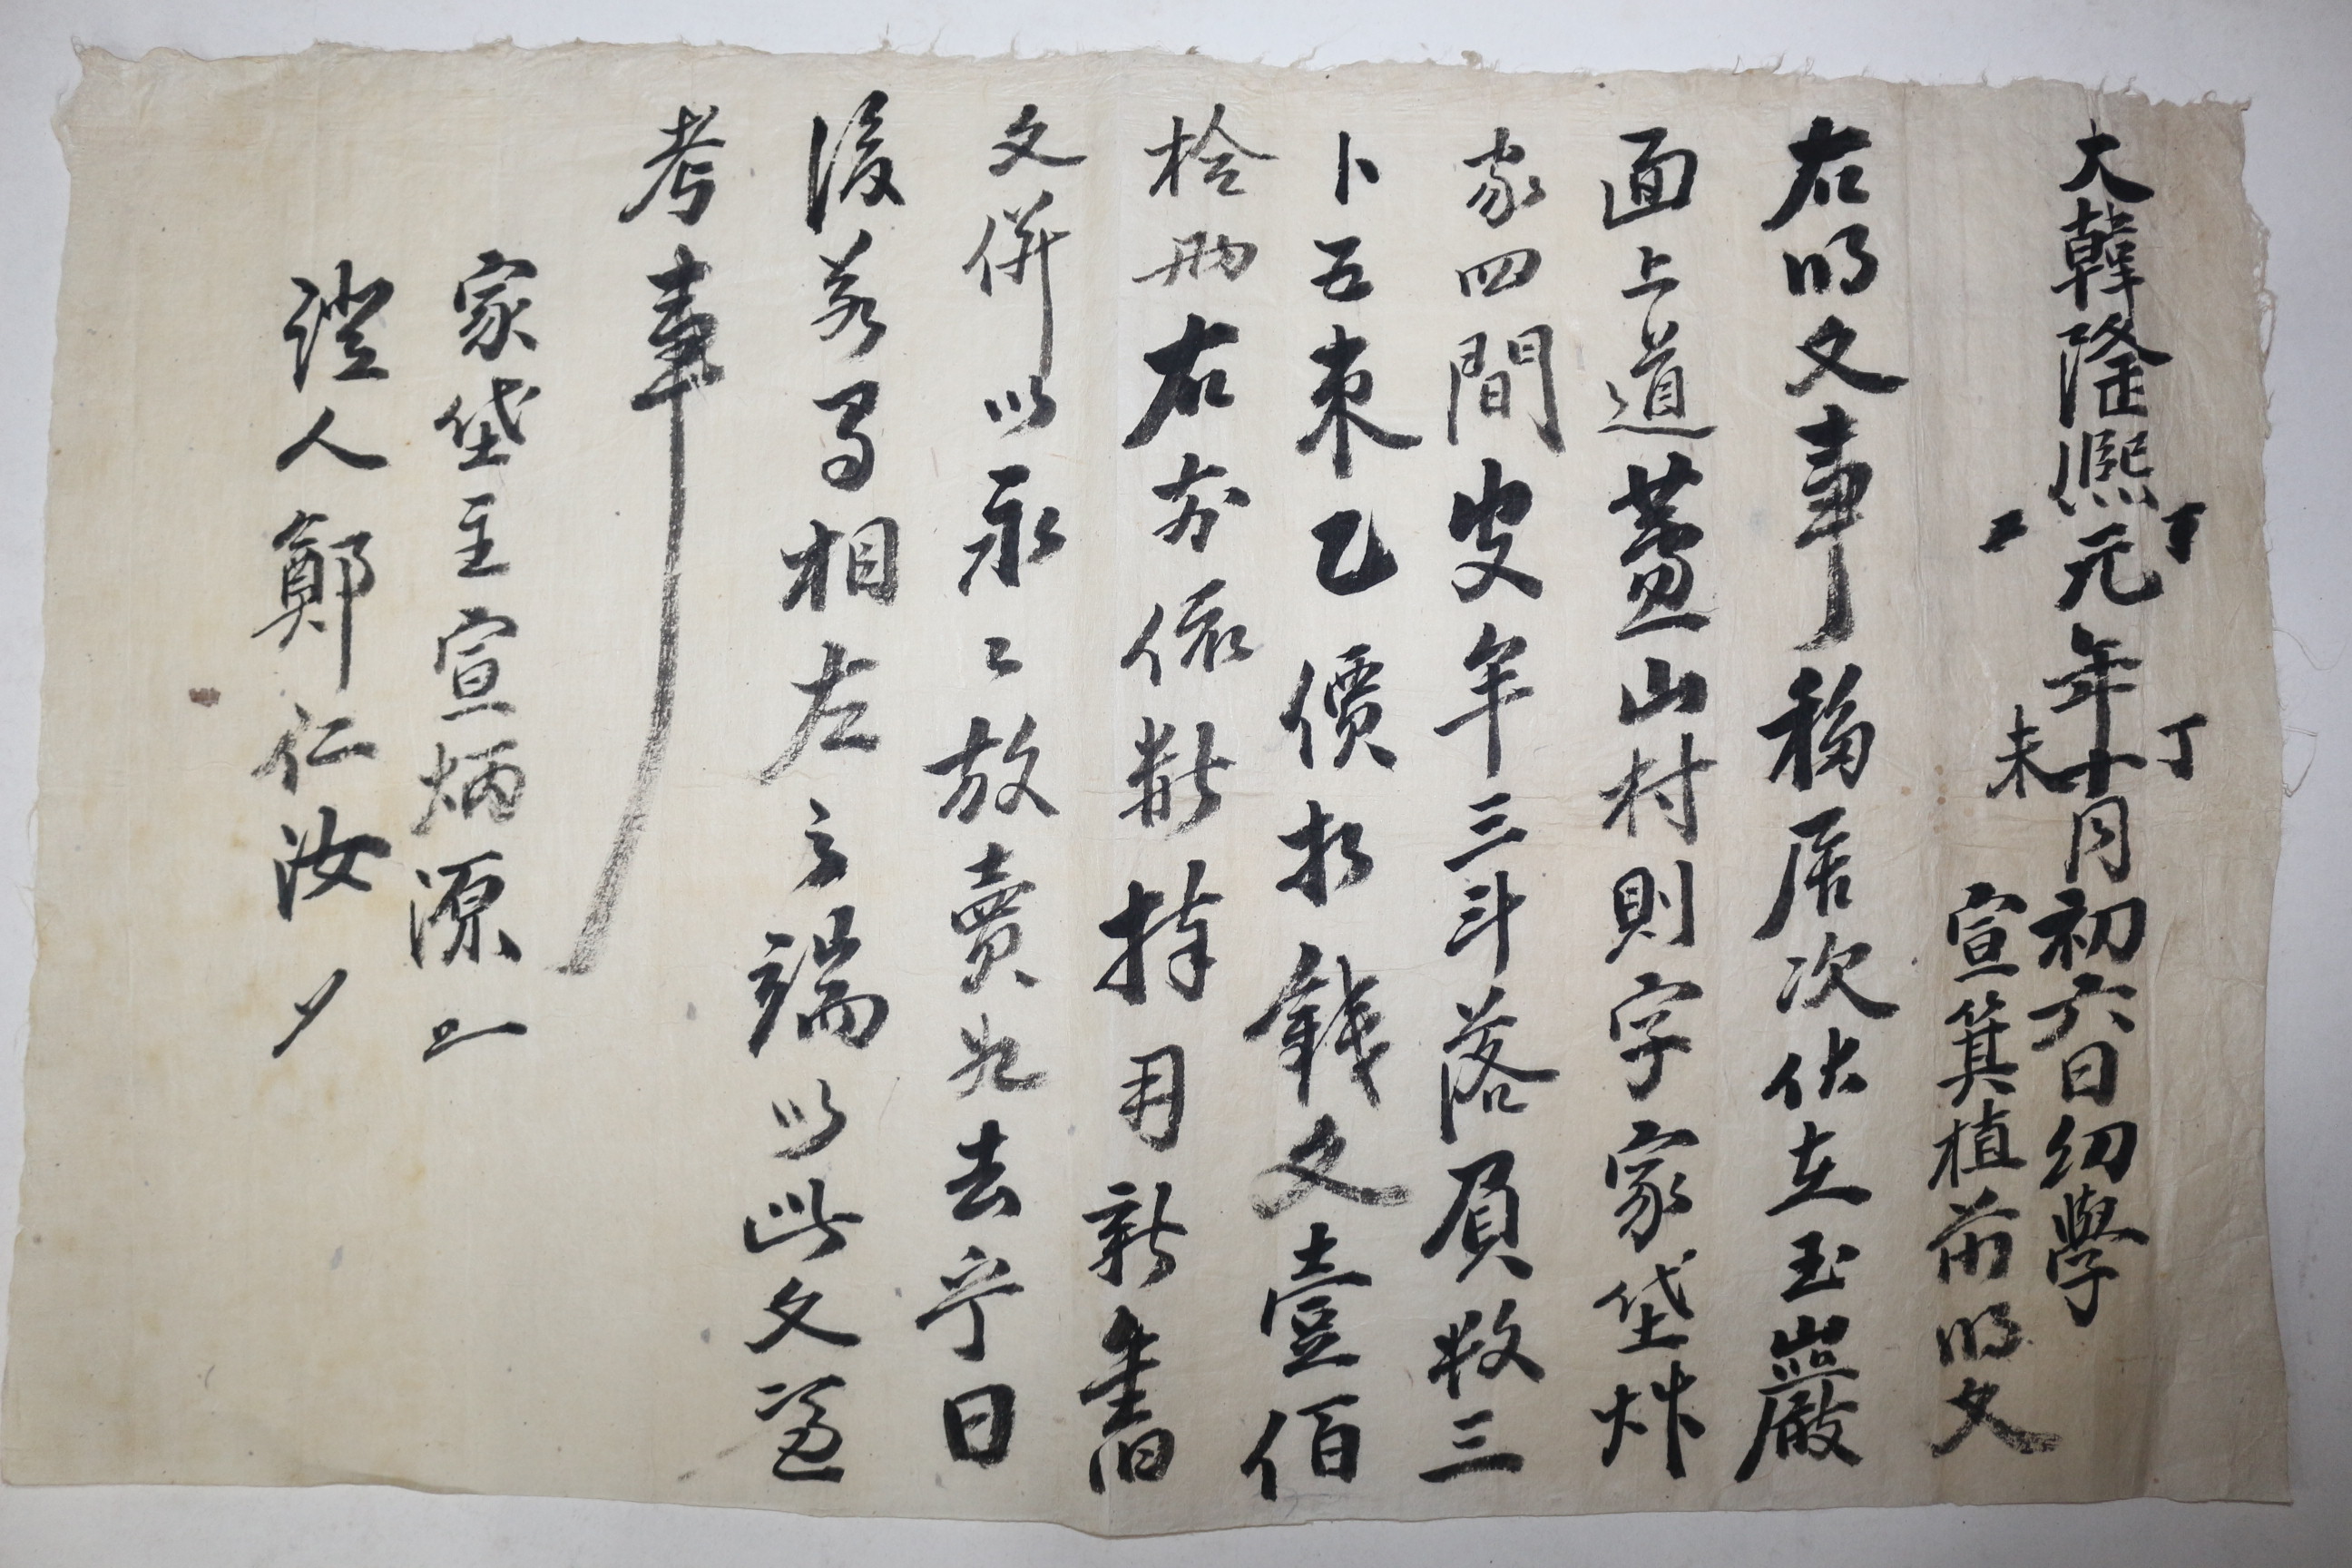 大韓隆熙元年丁未十月初六日幼學
宣箕植前明文
右明文事移居次伏在玉巖
面上道蓋山村則字家垈炸
家四間皮牟三斗落負數三
卜五束乙價折錢文壹佰
拾兩右前依數捧用新舊
文併以永〻放賣爲去乎日
後若有相左之端以此文憑
考事
家垈主宣炳源
證人鄭仁汝